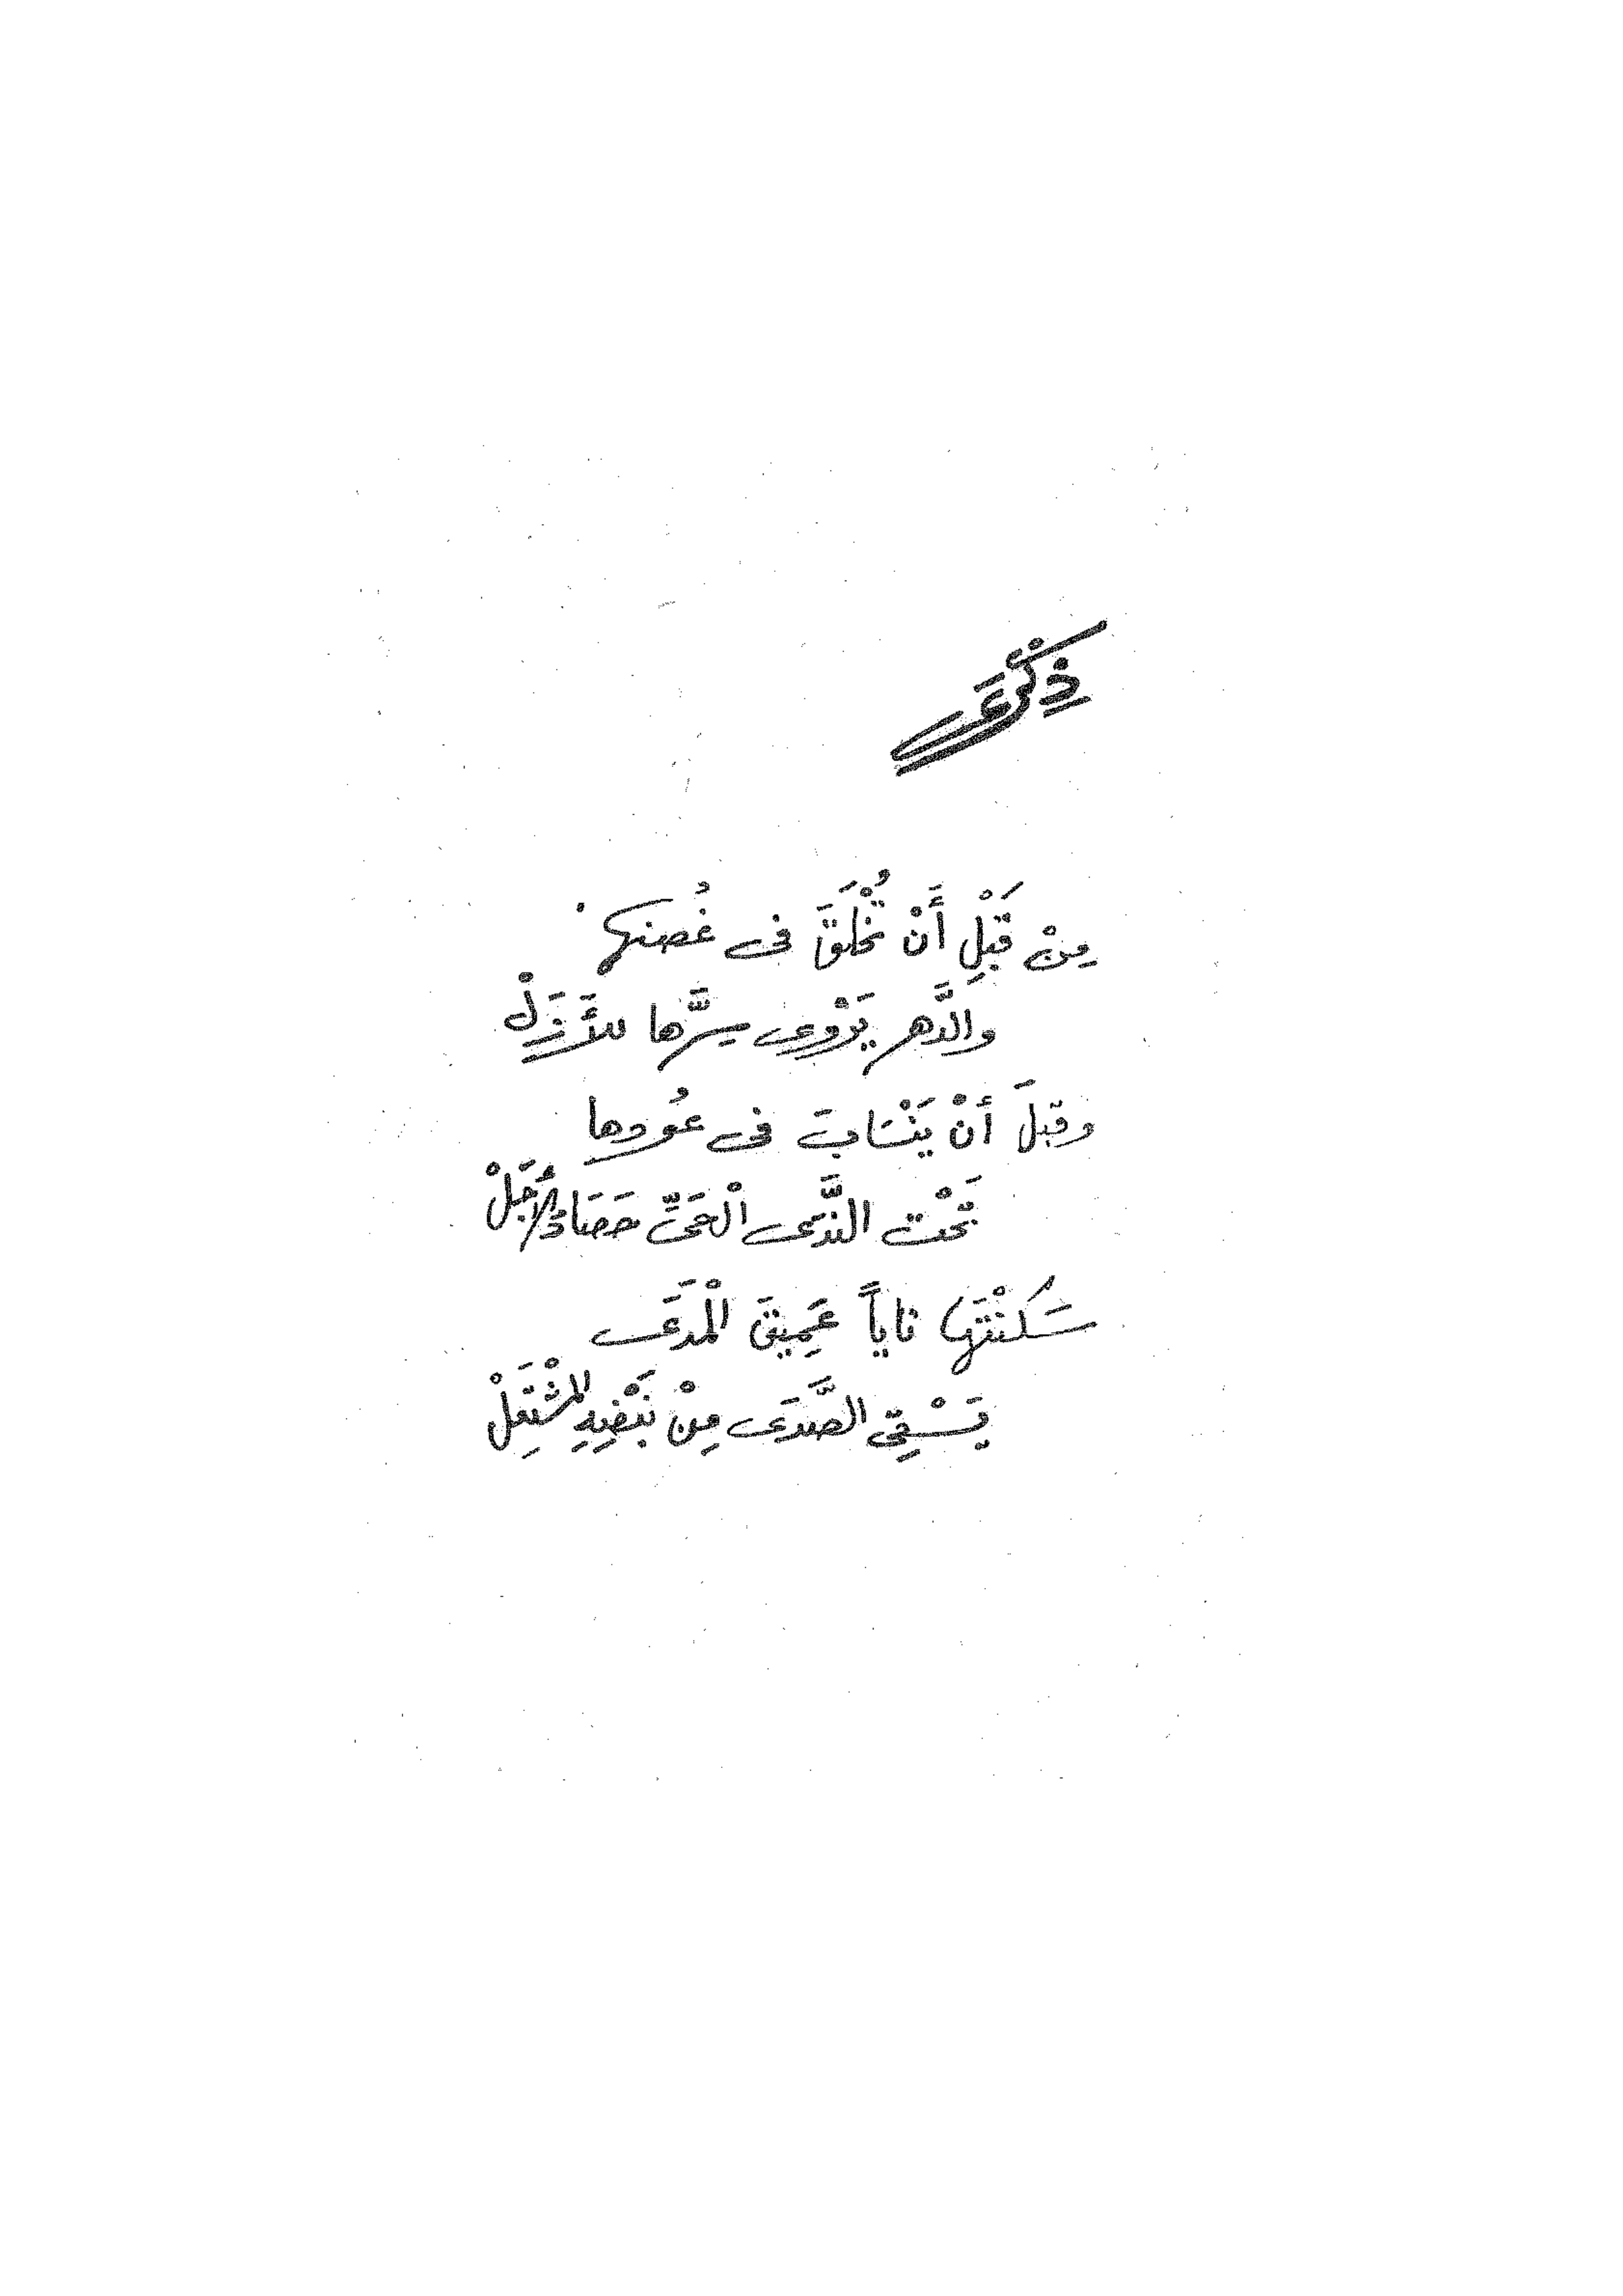 ذِكْرَى
مِنْ قَبْلِ أَنْ تُخْلَقَ فى غُصنها
والدَّهر يَرْوِى سِرَّها للأَزَلْ
وقبلَ أنْ يَنْسَابَ فى عُودها
تَحْت النَّدَى الْحَىِّ حَصَادُ الأَجَلْ
سَكَنْتَها ناياً عَمِيقَ الْمَدَى
يَسْقِى الصَّدَى مِنْ نَبْضِهِ الْمُشْتَعِلْ